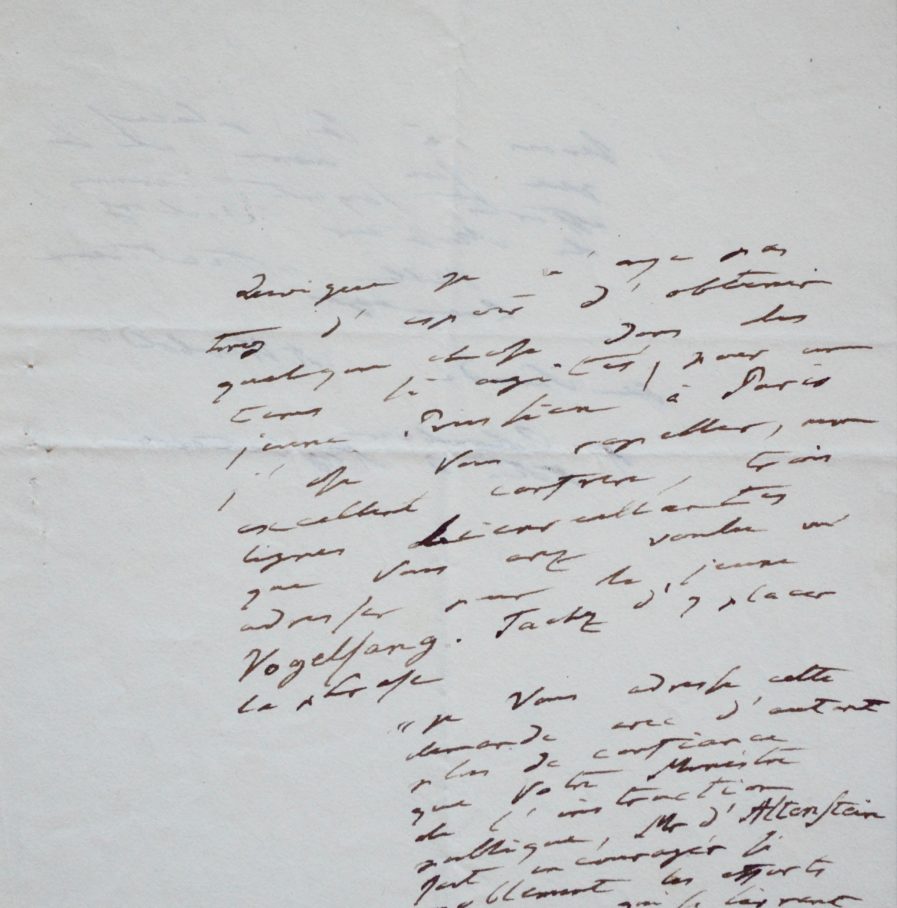 Quoique je n'aye pas
trop d'espoir d'obtenir
quelque chose dans les
tems si agités, pour un
jeune Prussien à Paris
j'ose Vous rapeller, mon
excellent confrere, trois
lignes
que Vous avez voulu m'
adresser pour le jeune
Vogelsang. Tachez d'y placer
la phrase
"je Vous adresse cette
demande avec d'autant
plus de confiance
que Votre Ministre
de l'instruction
publique, Mr d'Altenstein
peut encourager si
noblement les efforts
qui se livrent